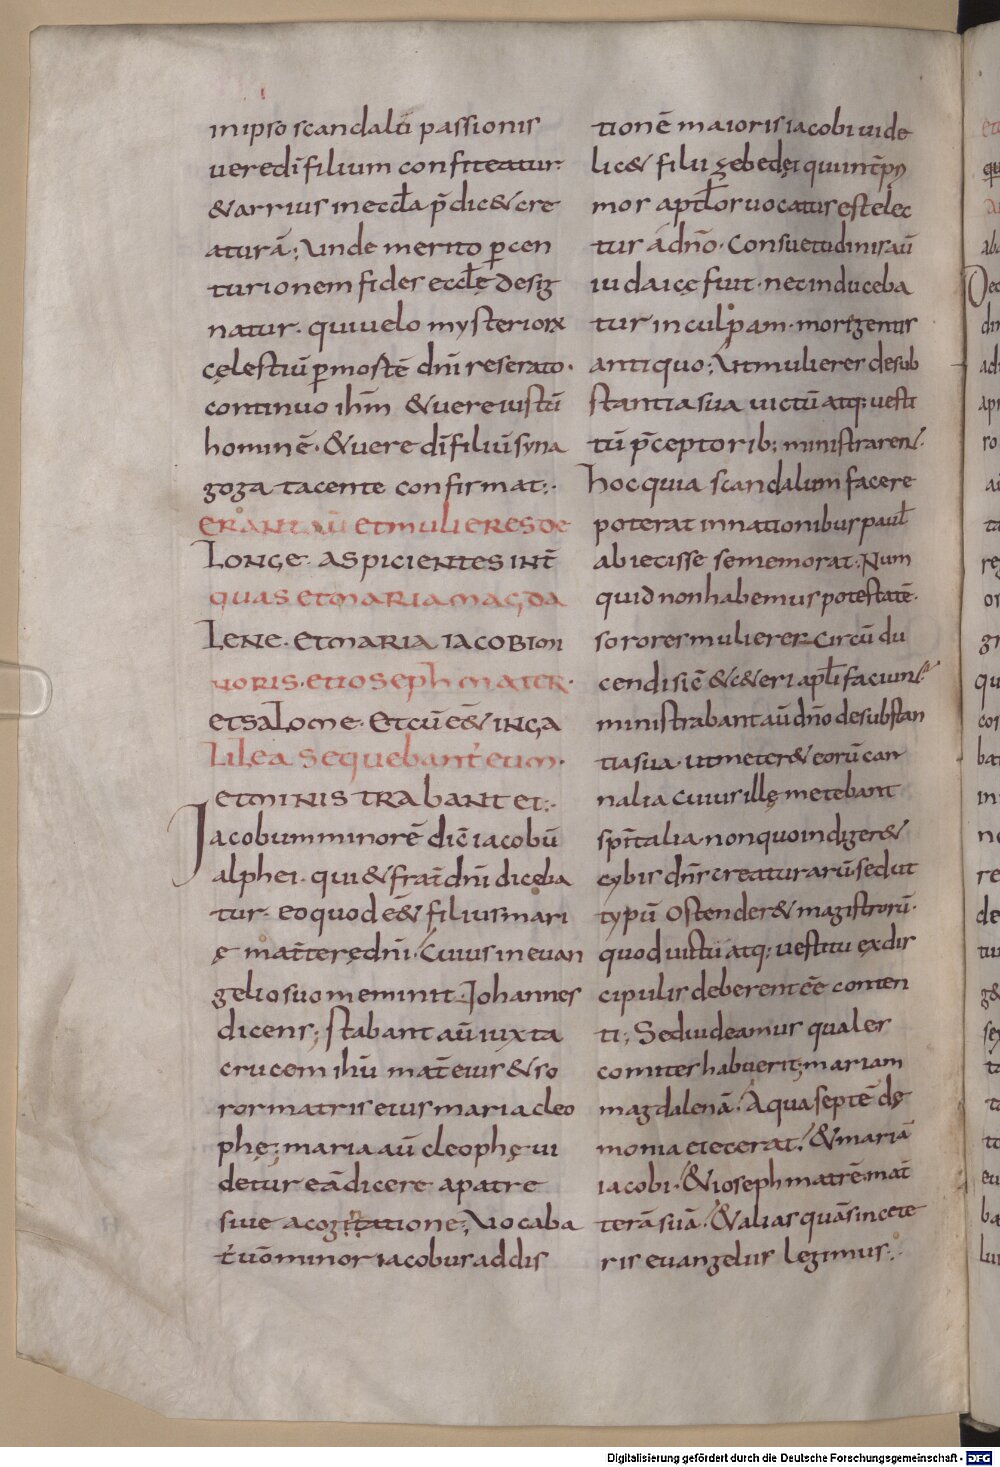 in ipso scandalū passionis
vere dī filium confiteatur·
& arrius in eccłā p̄dic& cre
aturā; Unde merito ꝑ cen
turionem fides eccłę desig
natur· qui uelo mysteriorꝝ
cęlestiū ꝑ mostē dn̄i reserato·
continuo ihm̄ & uere iustū
hominē· & uere dī filiū syna
goga tacente confirmat;·
ERANT AŪ ET MULIERES DE
LONGE· ASPICIENTES INT̄
QUAS ET MARIA MAGDA
LENE· ET MARIA IACOBI MI
NORIS· ET IOSEPH MATER·
ET SALOME· ET CŪ EĒ& IN GA
LILEA SEQUEBANT̄ EUM·
ET MINISTRABANT EI;·
Jacobum minorē dic̄ iacobū
alphei· qui & frat̄ dn̄i diceba
tur· eo quod eē& filius mari
ę mat̄terę dn̄i· Cuius in euan
gelio suo meminit Johannes
dicens; stabant aū iuxta
crucem ihū mat̄ eius & so
ror matris eius maria cleo
phę; maria aū cleophę ui
detur eā dicere a patre
siue a cogitatione; Uocaba
t̄ uō minor iacobus ad dis
tionē maioris iacobi uide
lic& filii zebedęi qui int̄ pꝰ
mor aptłor uocatus est elec
tur a dn̄o· Consuetudinis aū
iudaicę fuit· nec induceba
tur in culpam· more gentis
antiquo; Ut mulieres de sub
stantia sua uictū atq; uesti
tū p̄ceptorib; ministrarent·
hoc quia scandalum facere
poterat in nationibus pauł
abiecisse se memorat· Num
quid non habemus potestatē·
sorores mulieres circū du
cendi sic̄ & c&eri apłi faciunt
ministrabant aū dn̄o de substan
tia sua· ut meter& eorū car
nalia cuius illę metebant
spīt̄alia· non quo indiger&
cybis dn̄s creaturarū· sed ut
typū ostender& magistrorū·
quod uictū atq; uestitu ex dis
cipulis deberent eē conten
ti; Sed uideamus quales
comites habuerit; mariam
magdalenā· A qua septē dę
monia eiecerat; & mariā
iacobi· & ioseph matrē mat̄
terā suā· & alias quas in cete
ris euangeliis legimus;·
Digitalisierung gefördert durch die Deutsche Forschungsgemeinschaft - DFG